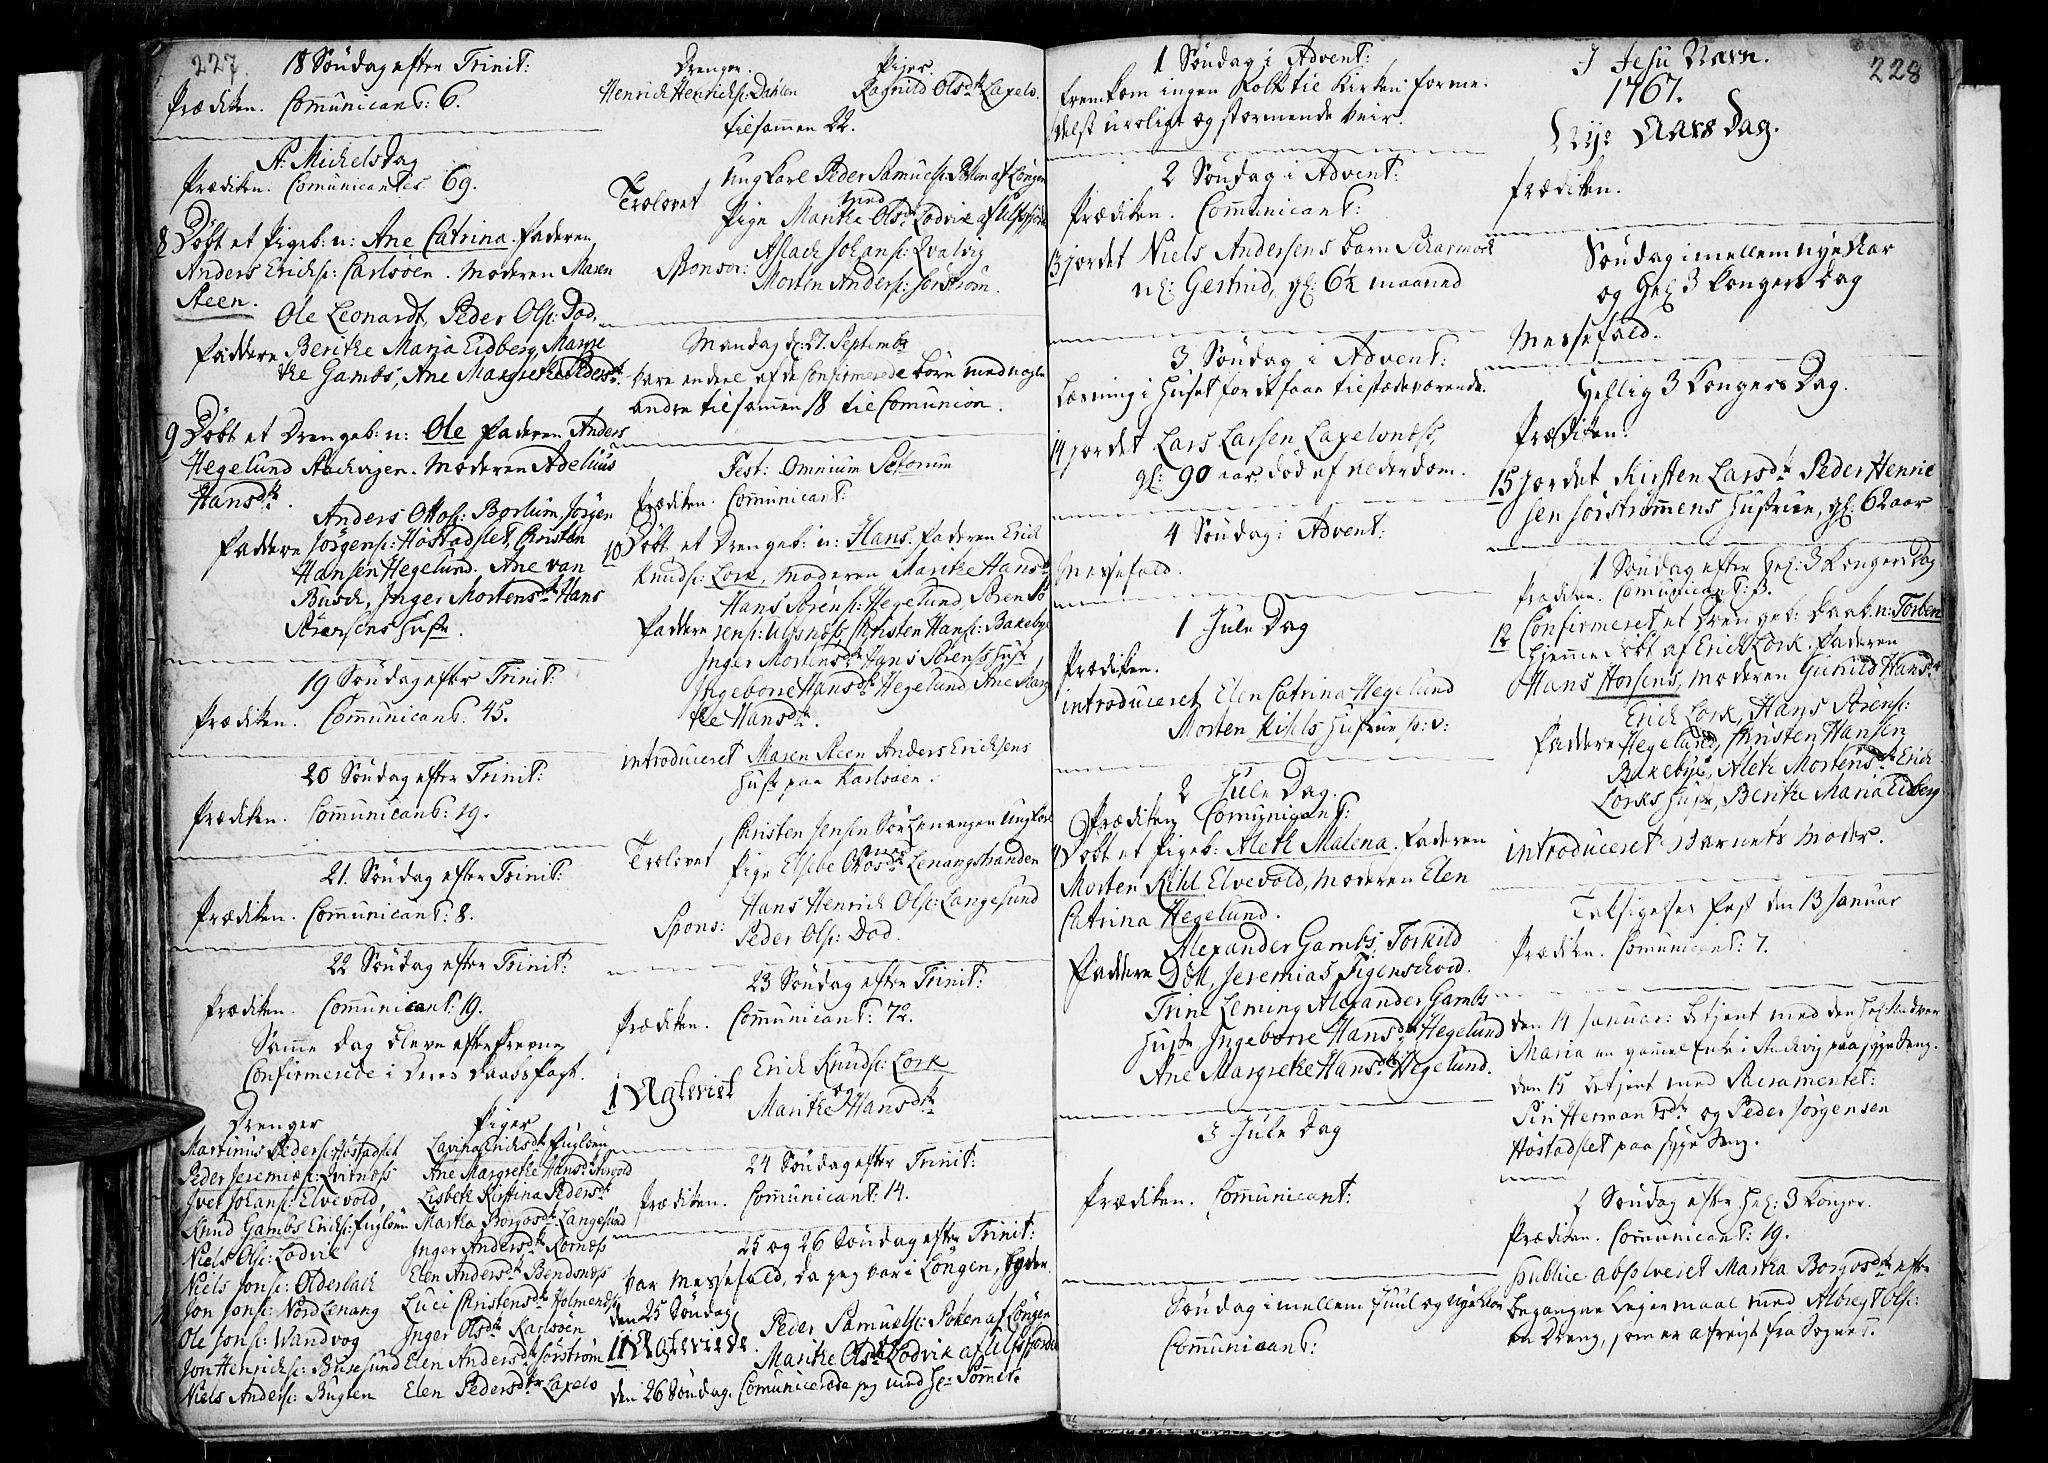 227.
18 Søndag efter Trinit:
Prædiken. Com̄unicant: 6.
St: Michels Dag
Prædiken. Comunicantes 69.
8 Døbt et Pigeb: n: Ane Catrina. Faderen
Anders Erichs: Carlsöen. Moderen Maren
Steen.
Ole Leonardt, Peder Ols: Dod,
Faddere Berithe Maria Eidberg, Margre
the Gambs, Ane Margrethe Pedersdr.
9 Døbt et Drengeb: n: Ole Faderen Anders
Hegelund Stachvigen. Moderen Adelius
Hansdr.
Anders Ottos: Borlum, Jörgen
Faddere Jörgens: Hostadslet, Christen
Hansen Hegelund. Ane van
Busch, Inger Mortensdr. Hans
Sörensens Hustr.
19 Søndag efter Trinit:
Prædiken. Com̄unicant: 45.
20 Søndag efter Trinit:
Prædiken. Com̄unicant: 19.
21. Søndag efter Trinit:
Prædiken. Com̄unicant: 8.
22 Søndag efter Trinit:
Prædiken. Com̄unicant: 19.
Sam̄e Dag bleve efterskrevne
Confirmerede i Deres Daabspagt.
Drenger
Martinus Peders: Hostadslet
Peder Jeremiæs: Qvitnæss
Iver Johans: Elvevold,
Knud Gambs Erichs: Fuglöen
Niels Ols: Lodvik
Niels Jons: Olderbach
Jon Jons: Nord Lenang
Ole Jons: Wandvog
Jon Henrichs: Burösund
Niels Anders: Buglen
Piger
Lavina Erichsdr. Fuglöen
Ane Margrethe Hansdr.
Lisbeth Kirstina Pedersdr.
Martha Borgosdr. Langesund
Inger Andersdr. Kornæss
Elen Andersdr. Bendsnæss
Luci Christensdr. Holmendss
Inger Olsdr. Karlsöen
Elen Andersdr. Sörström̄
Elen Pedersdr. Laxelv
Drenger.
Henrich Henrichs: Dahlen
Piger.
Ragnild Olsdr. Laxelv.
tilsammen 22.
Ung Karl Peder Samuels: Potten af Löngen
Trolovet med
Pige Marithe Olsdr. Lodvik af Ulfsfjorden
Aslach Johans: Qvalvig
Sponsor: Morten Anders: Sörström.
Mandag d: 27. Septembr
vare endeel af de Confirmerede börn med nogle
andre tilsam̄en 18 til Comunion.
Fest: Omnium Sctorum
Prædiken. Com̄unicant:
10 Døbt et Drengeb: n: Hans. Faderen Erich
Knuds: Lork, Moderen Marithe Hansdr.
Hans Sörens: Hegelund, Sören Sö
Faddere rens: Ulfsnæss, Christen Hans: Bakeby,
Inger Mortensdr. Hans Sörens: Hustr
Ingeborre Hansdr. Hegelund, Ane Marg
the Hansdr.
introduceret Maren Steen Anders Erichsens
Hustr paa Karlsöen.
Christen Jensen Sör Lenangen Ung Karl
Trolovet med
Pige Elsebe Olsdr. Lenangstranden
Hans Henrich Ols: Langesund
Spons: Peder Ols: Dod.
23 Søndag efter Trinit:
Prædiken. Com̄unicant: 72.
1 Ægteviet Erich Knuds: Lork
og
Marithe Hansdr.
24 Søndag efter Trinit:
Prædiken. Com̄unicant: 14.
25 og 26 Søndag efter Trinit:
var Messefald, da jeg var i Löngen,
den 25 Søndag
11 Ægteviede. Peder Samuels: Poken af Löngen
Marithe Olsdr. Lodvik af Ulfsfjorden
den 26 Søndag. Comunicerede jeg med Hr. Som̄er.
228
1 Søndag i Advent:
fremkom ingen Folk til Kirken forme-
delst uroligt og stormende veir.
2 Søndag i Advent:
Prædiken. Com̄unicant:
13 Jordet Niels Andersens barn Skarmoch
n: Gertrud, gl: 6½ maaned
3 Søndag i Advent:
Læsning i Huset for de faae tilstædeværende.
14 Jordet Lars Larsen Laxelvnæss,
gl: 90 aar, död af Alderdom.
4 Søndag i Advent:
Messefald.
1 Jule Dag
Prædiken.
introduceret Elen Catrina Hegelund
Morten Kihls Hustrue p: v:
2 Jule Dag.
Prædiken Com̄unicant:
11 Døbt et Pigeb: Aleth Malena. Faderen
Morten Kihl Elvevold, Moderen Elen
Catrina Hegelund.
Alexander Gambs, Torkild
Faddere Döll, Jeremias Figenschoid.
Trine Leming Alexander Gambs
Hustr Ingeborre Hansdr. Hegelund
Ane Margrethe Hansdr. Hegelund.
3 Jule Dag
Prædiken. Com̄unicant:
Søndag imellem Juul og Nye Aar
Com̄unicant:
I Jesu Navn.
1767.
Nye Aars Dag.
Prædiken.
Søndag imellem Nye Aar
og Hel 3 Konger Dag
Messefald.
Hellig 3 Kongers Dag.
Prædiken.
15 Jordet Kirsten Larsdr. Peder Henrie
sen Sörström̄ens Hustrue, gl: 62 aar
1 Søndag efter Hel: 3 Kongers Dag
Prædiken. Comunicant: 3.
12 Confirmeret et Drengeb: Daab. n: Torben
hjemedöbt af Erich Lork. Faderen
Hans Horsens, Moderen Gunild Hansdr.
Erich Lork, Hans Sörens:
Faddere Hegelund, Christen Hansen
Bakebye, Aleth Mortensdr. Erich
Lorks Hustr, Berithe Maria Eidberg
introduceret Barnets Moder.
Taksigelses Fest den 13 Januar
Prædiken. Comunicant: 7.
den 14 Januar: betjent med den Hel: Nadver
Maria en gammel Enke i Stachvig paa syge Seng.
den 15 betjent med Sacramentet:
Siri Hermansdr. og Peder Jörgensen
Hostadslet paa syge Seng.
2 Søndag efter Hel: 3 Konger.
Prædiken. Com̄unicant: 19.
publice absolveret Martha Borgosdr. efter
begangne Leiermaal med Albregt Ols:
en Dreng, som er afreigst fra Sognet.